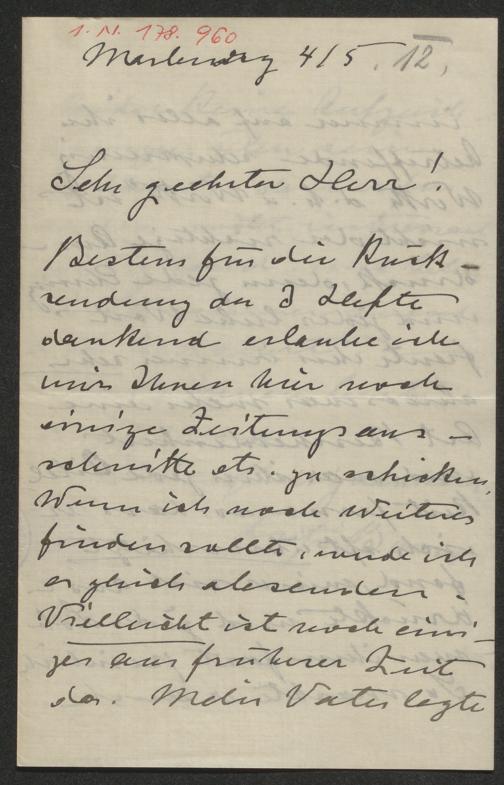 I. N. 178.960
Marburg 4/5. 12,
Sehr geehrter Herr!
Bestens für die Rück-
sendung der 3 Hefte
dankend erlaube ich
mir Ihnen hier noch
einige Zeitungsaus-
schnitte etc. zu schicken,
Wenn ich noch Weiteres
finden sollte, werde ich
es gleich absenden.
Vielleicht ist noch eini-
ges aus früherer Zeit
da. Mein Vater legte